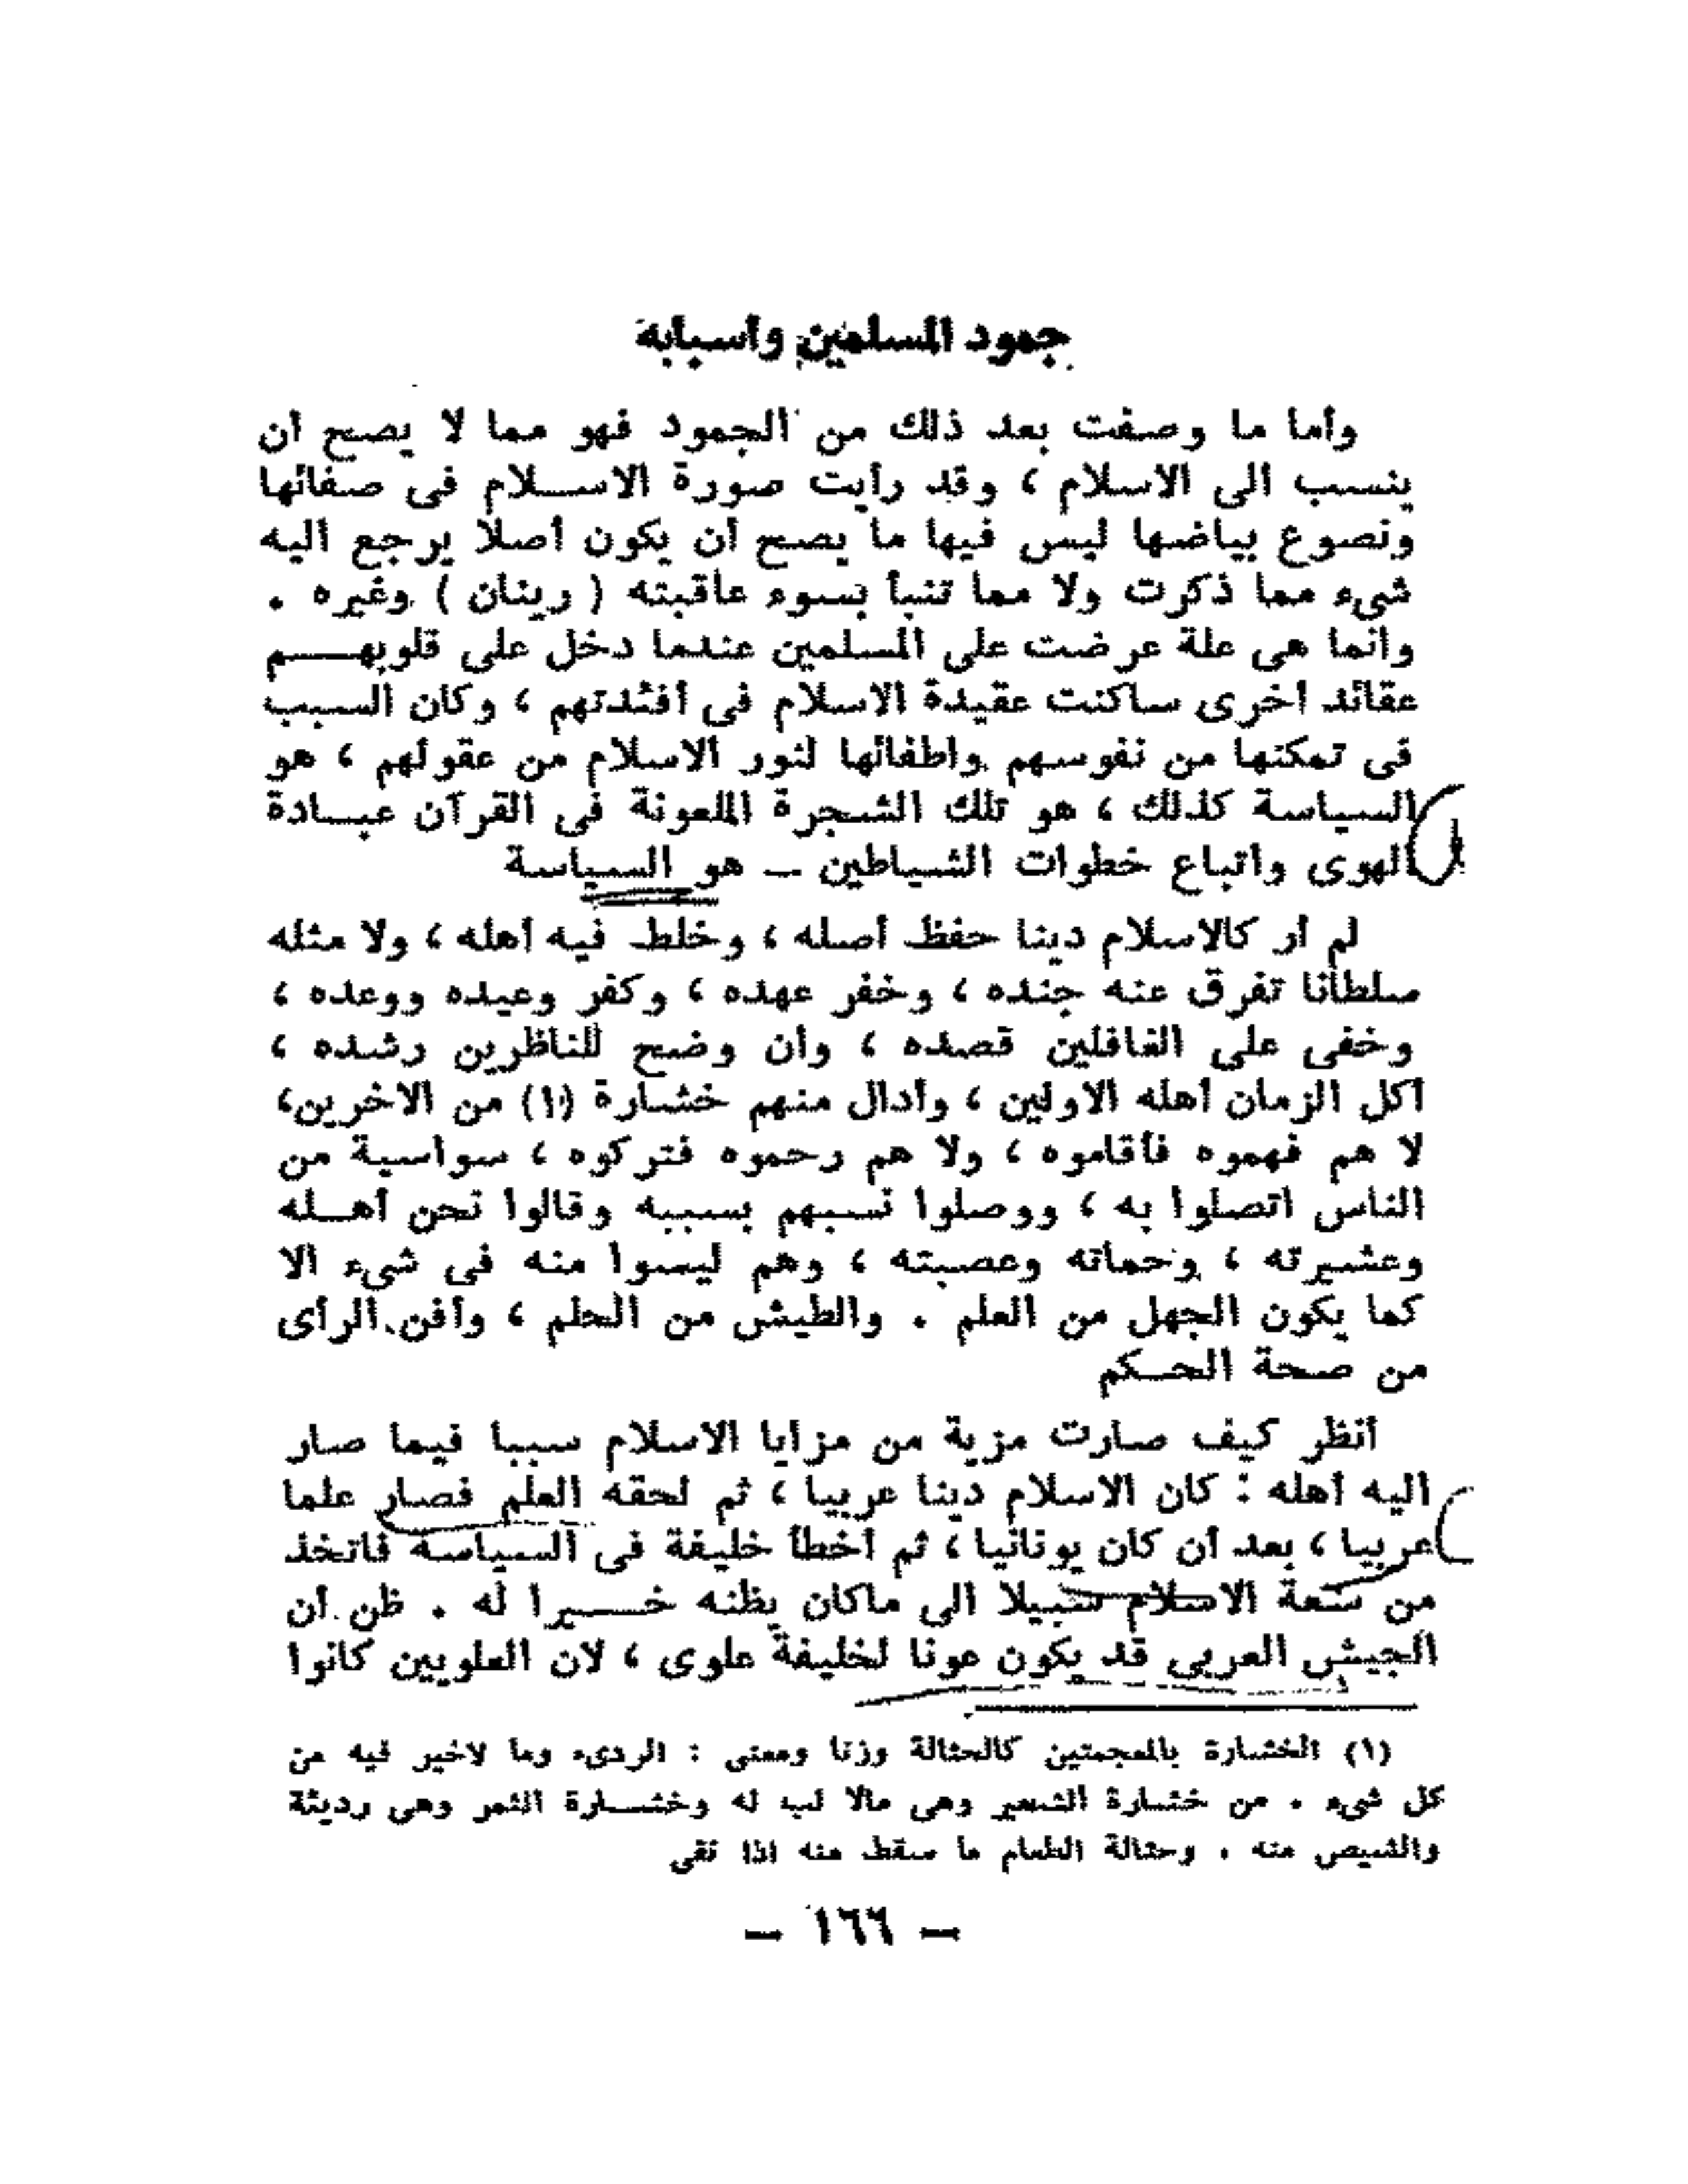 جمود المسلمين وأسبابه
وأما ما وصفت بعد ذلك من الجمود فهو مما لا يصح أن
ينسب الى الاسلام ، وقد رأيت صورة الاسلام فى صفائها
ونصوع بياضها ليس فيها ما يصح أن يكون أصلا يرجع اليه
شىء مما ذكرت ولا مما تنبأ بسوء عاقبته ( رينان ) وغيره .
وانما هى علة عرضت على المسلمين عندما دخل على قلوبهم
عقائد أخرى ساكنت عقيدة الاسلام فى أفئدتهم ، وكان السبب
فى تمكنها من نفوسهم واطفائها لنور الاسلام من عقولهم ، هو
السياسة كذلك ، هو تلك الشجرة الملعونة فى القرآن عبادة
الهوى واتباع خطوات الشياطين - هو السياسة
لم أر كالاسلام دينا حفظ أصله ، وخلط فيه أهله ، ولا مثله
سلطانا تفرق عنه جنده ، وخفر عهده ، وكفر وعيده ووعده ،
وخفى على الغافلين قصده ، وان وضح للناظرين رشده ،
أكل الزمان أهله الاولين ، وأدال منهم خشارة (١) من الاخرين،
لا هم فهموه فأقاموه ، ولا هم رحموه فتركوه ، سواسية من
الناس اتصلوا به ، ووصلوا نسبهم بسببه وقالوا نحن أهله
وعشيرته ، وحماته وعصبته ، وهم ليسوا منه فى شىء الا
كما يكون الجهل من العلم . والطيش من الحلم ، وأفن الرأى
من صحة الحكم
أنظر كيف صارت مزية من مزايا الاسلام سببا فيما صار
اليه أهله : كان الاسلام دينا عربيا ، ثم لحقه العلم فصار علما
عربيا ، بعد أن كان يونانيا ، ثم أخطأ خليفة فى السياسة فاتخذ
من سعة الاسلام سبيلا الى ماكان يظنه خيرا له . ظن أن
الجيش العربى قد يكون عونا لخليفة علوى ، لان العلويين كانوا
(١) الخشارة بالمعجمتين كالحثالة وزنا ومعنى : الردىء وما لاخير فيه من
كل شىء . من خشارة الشعير وهى مالا لب له وخشارة الثمر وهى رديئة
والشيص منه . وحثالة الطعام ما سقط منه اذا نقى
- ١٦٦ -